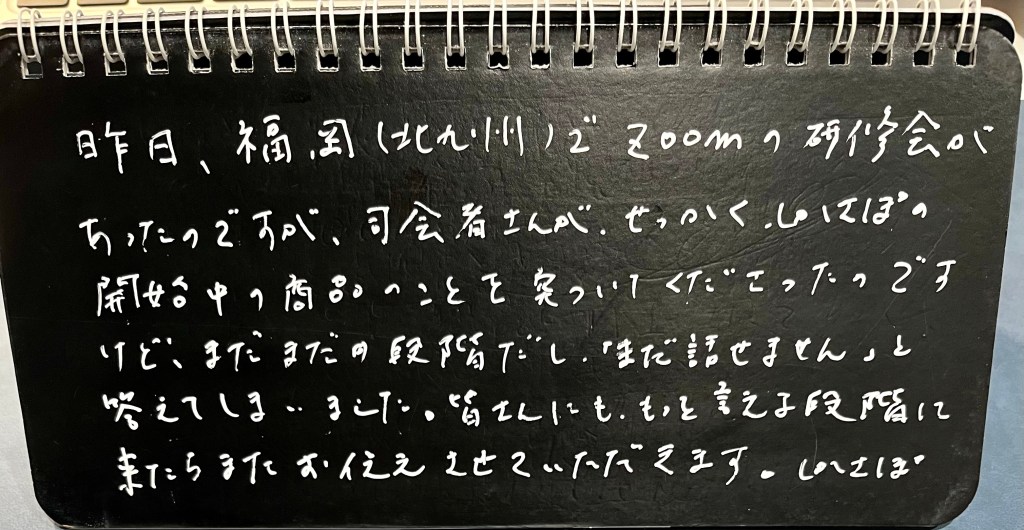 昨日、福岡(北九州)でZoomの研修会が
あったのですが、司会者さんが、せっかく、しいさぽの
開始中の商品のことを突ついてくださったのです
けど、まだまだの段階だし、「まだ話せません」と
答えてしまいました。皆さんにも、もっと言える段階に
来たらまたお伝えさせていただきます。しいさぽ